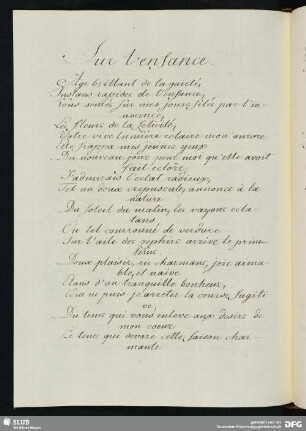 Sur l'enfance.
Age brillant de la gaieté,
Instans rapides de l'enfance,
Vous semés sur mes jours filés par l'in-
nocence,
Les fleurs de la felicité,
Votre vive lumiere eclaire mon aurore
frappa mes jeunes yeux
Du nouveau jour pour moi qu'elle avoit
fait eclore,
J'admirais l'eclat radieux,
Tel un doux crepuscule, annonce à la
nature
Du soleil du matin, les rayons ecla
tans,
Ou tel couronné de verdure
Sur l'aile des zephirs arrive le prin-
tems.
Doux plaisir, ris charmans, joie aima-
ble, et naive
Elans d'un tranquille bonheur,
ne puis je arreter la course fugiti
ve,
Du tems qui vous enleve aux desirs de
mon coeur
Le tems qui devore cette saison char-
mante
SLUB
DFG